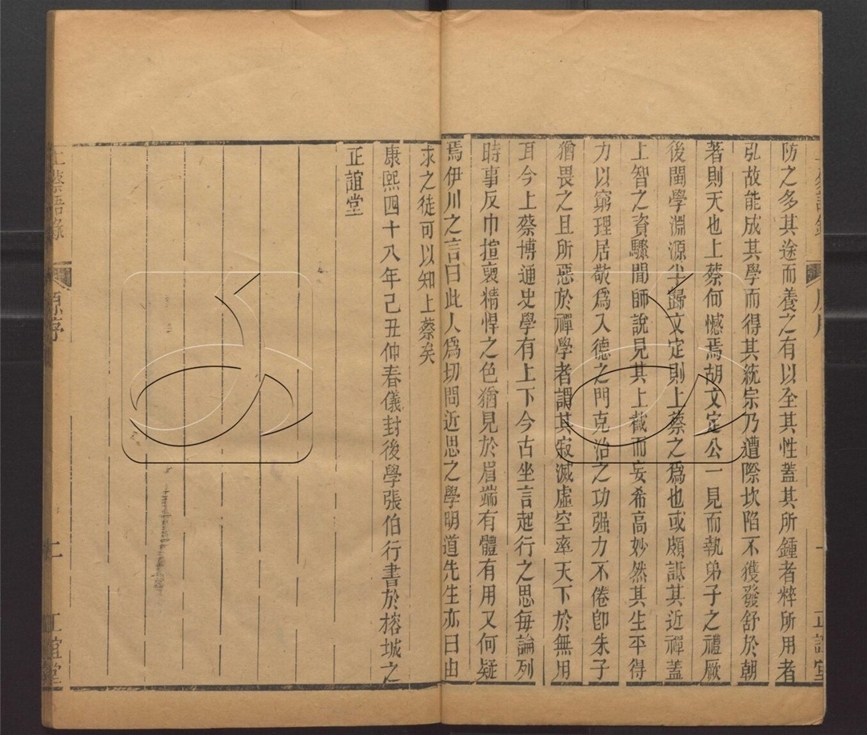 防之多其途而養之有以全其性蓋其所鍾者粹所用者
弘故能成其學而得其統宗乃遭際坎陷不獲發舒於朝
著則天也上蔡何憾焉胡文定公一見而執弟子之禮厥
後閩學淵源半歸文定則上蔡之爲也或頗詆其近禪蓋
上智之資驟聞師說見其上截而妄希高妙然其生平得
力以窮理居敬爲入德之門克治之功强力不倦卽朱子
猶畏之且所惡於禪學者謂其寂滅虛空率天下於無用
耳今上蔡博通史學有上下今古坐言起行之思每論列
時事反巾揎裒精悍之色猶見於眉端有體有用又何疑
焉伊川之言曰此人爲切問近思之學明道先生亦曰由
求之徒可以知上蔡矣
康熙四十八年己丑仲春儀封後學張伯行書於榕城之
正誼堂
上蔡語錄
原序
二
正誼堂